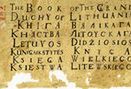 THE BOOK OF THE GRAN
DUCHY OF LITHUANIA
КНІГА ВЯЛІКАГА
КНЯСТВА ЛІТОЎСКАГА
LIETUVOS DIDŽIOSIOS
KUNIGAIKŠTYSTĖS KNYGA
KSIĘGA WIELKIEGO
KSIĘSTWA LITEWSKIEGO